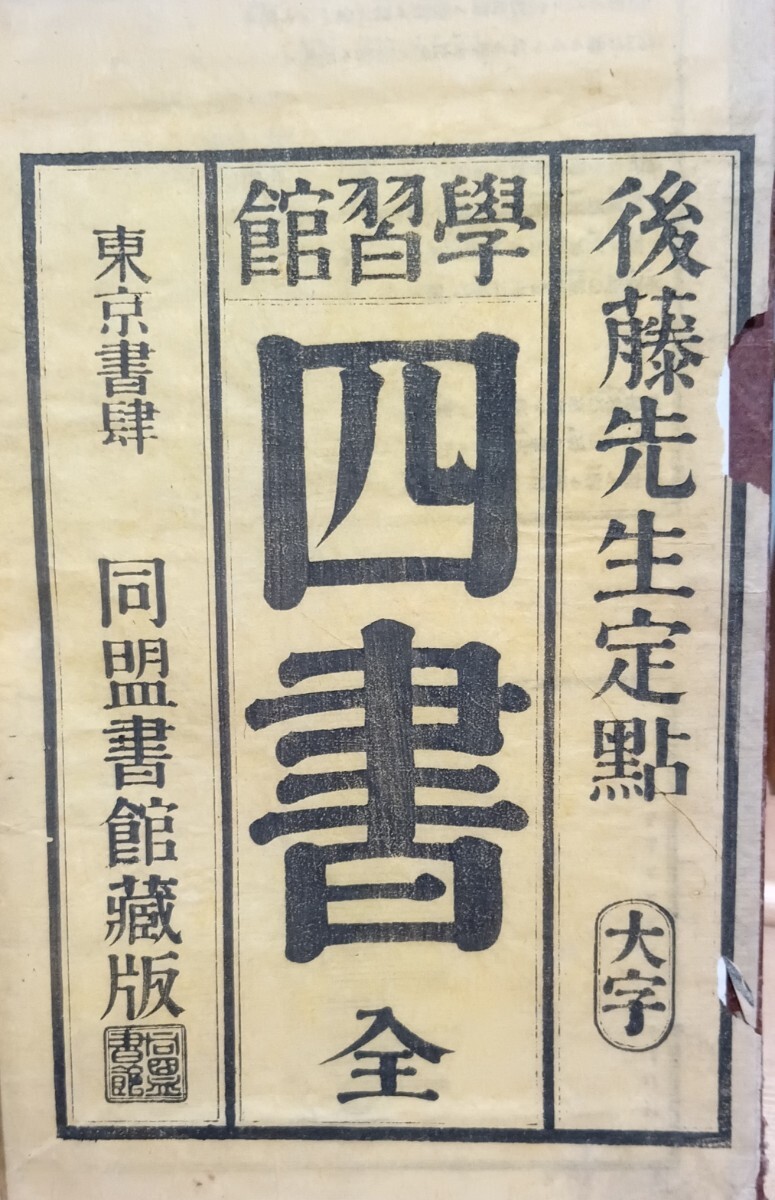 後藤先生定點
大字
學習館
四書
全
東京書肆
同盟書館藏版
同盟書館